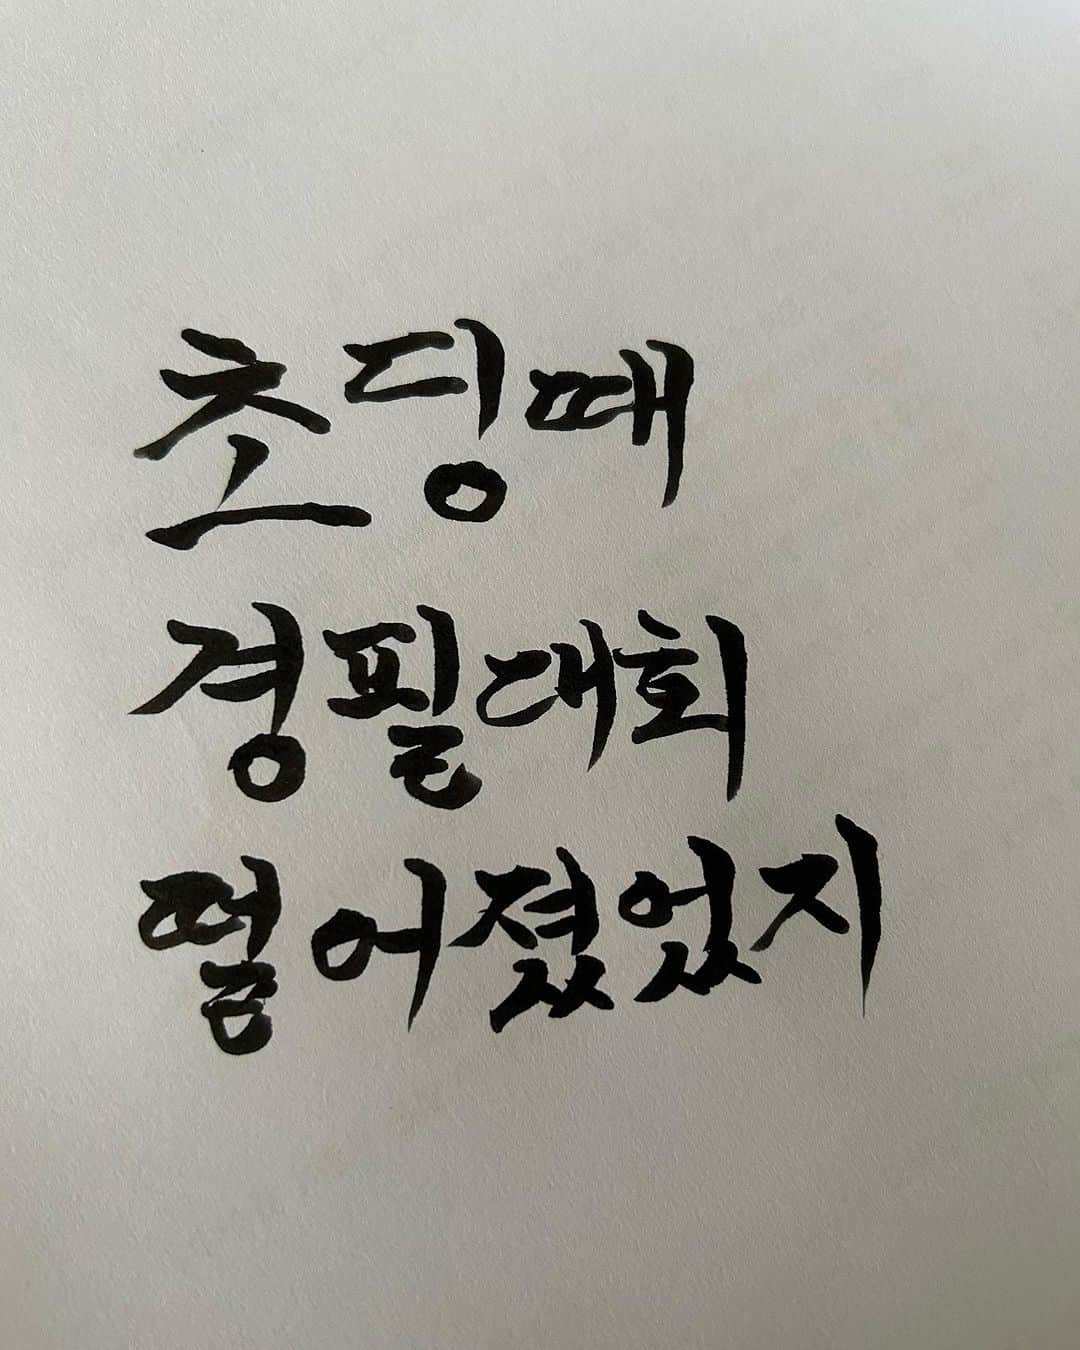 초딩때
경필대회
떨어졌었지